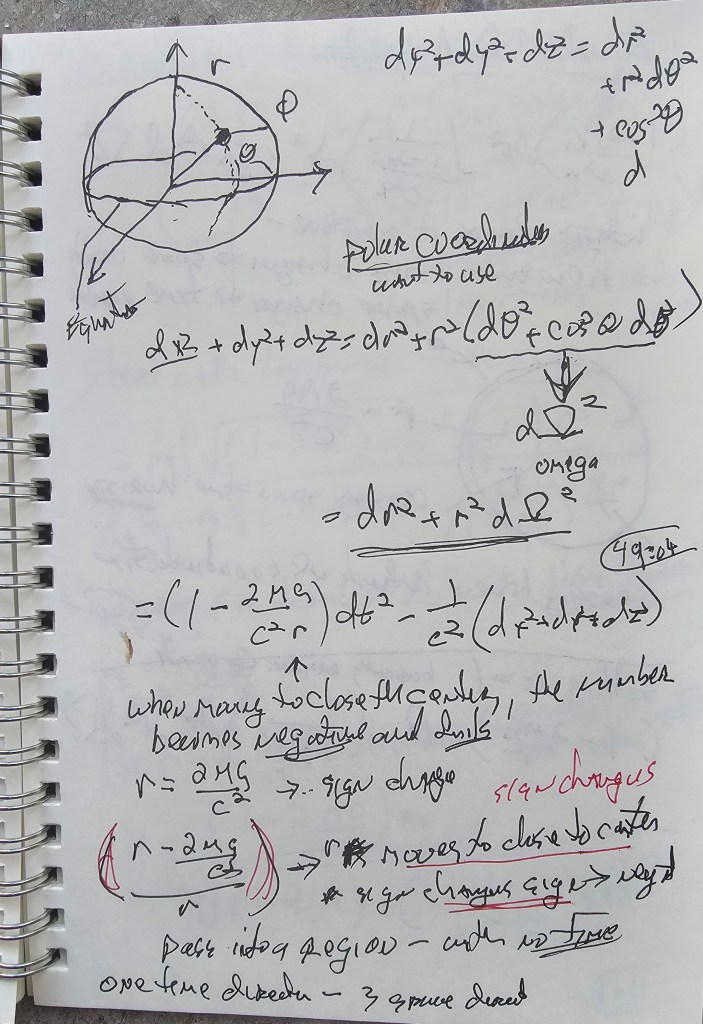 r
dx²+dy²+dz² = dr²
+ r²dθ²
+ cos²θ
d
φ
θ
Equator
Polar coordinates
want to use
dx² + dy² + dz² = dr² + r² (dθ² + cos²θ dθ²)
dΩ²
omega
= dr² + r² dΩ²
49:04
= (1 - 2MG/c²r) dt² - 1/c² (dx²+dy²+dz²)
when moving to close the center, the number
becomes negative and
r = 2MG/c² → sign change
sign changes
(r - 2MG/c²)/r → r moves to close to center
sign changes sign →
pass into a region - with no time
one time direction - 3 space direct